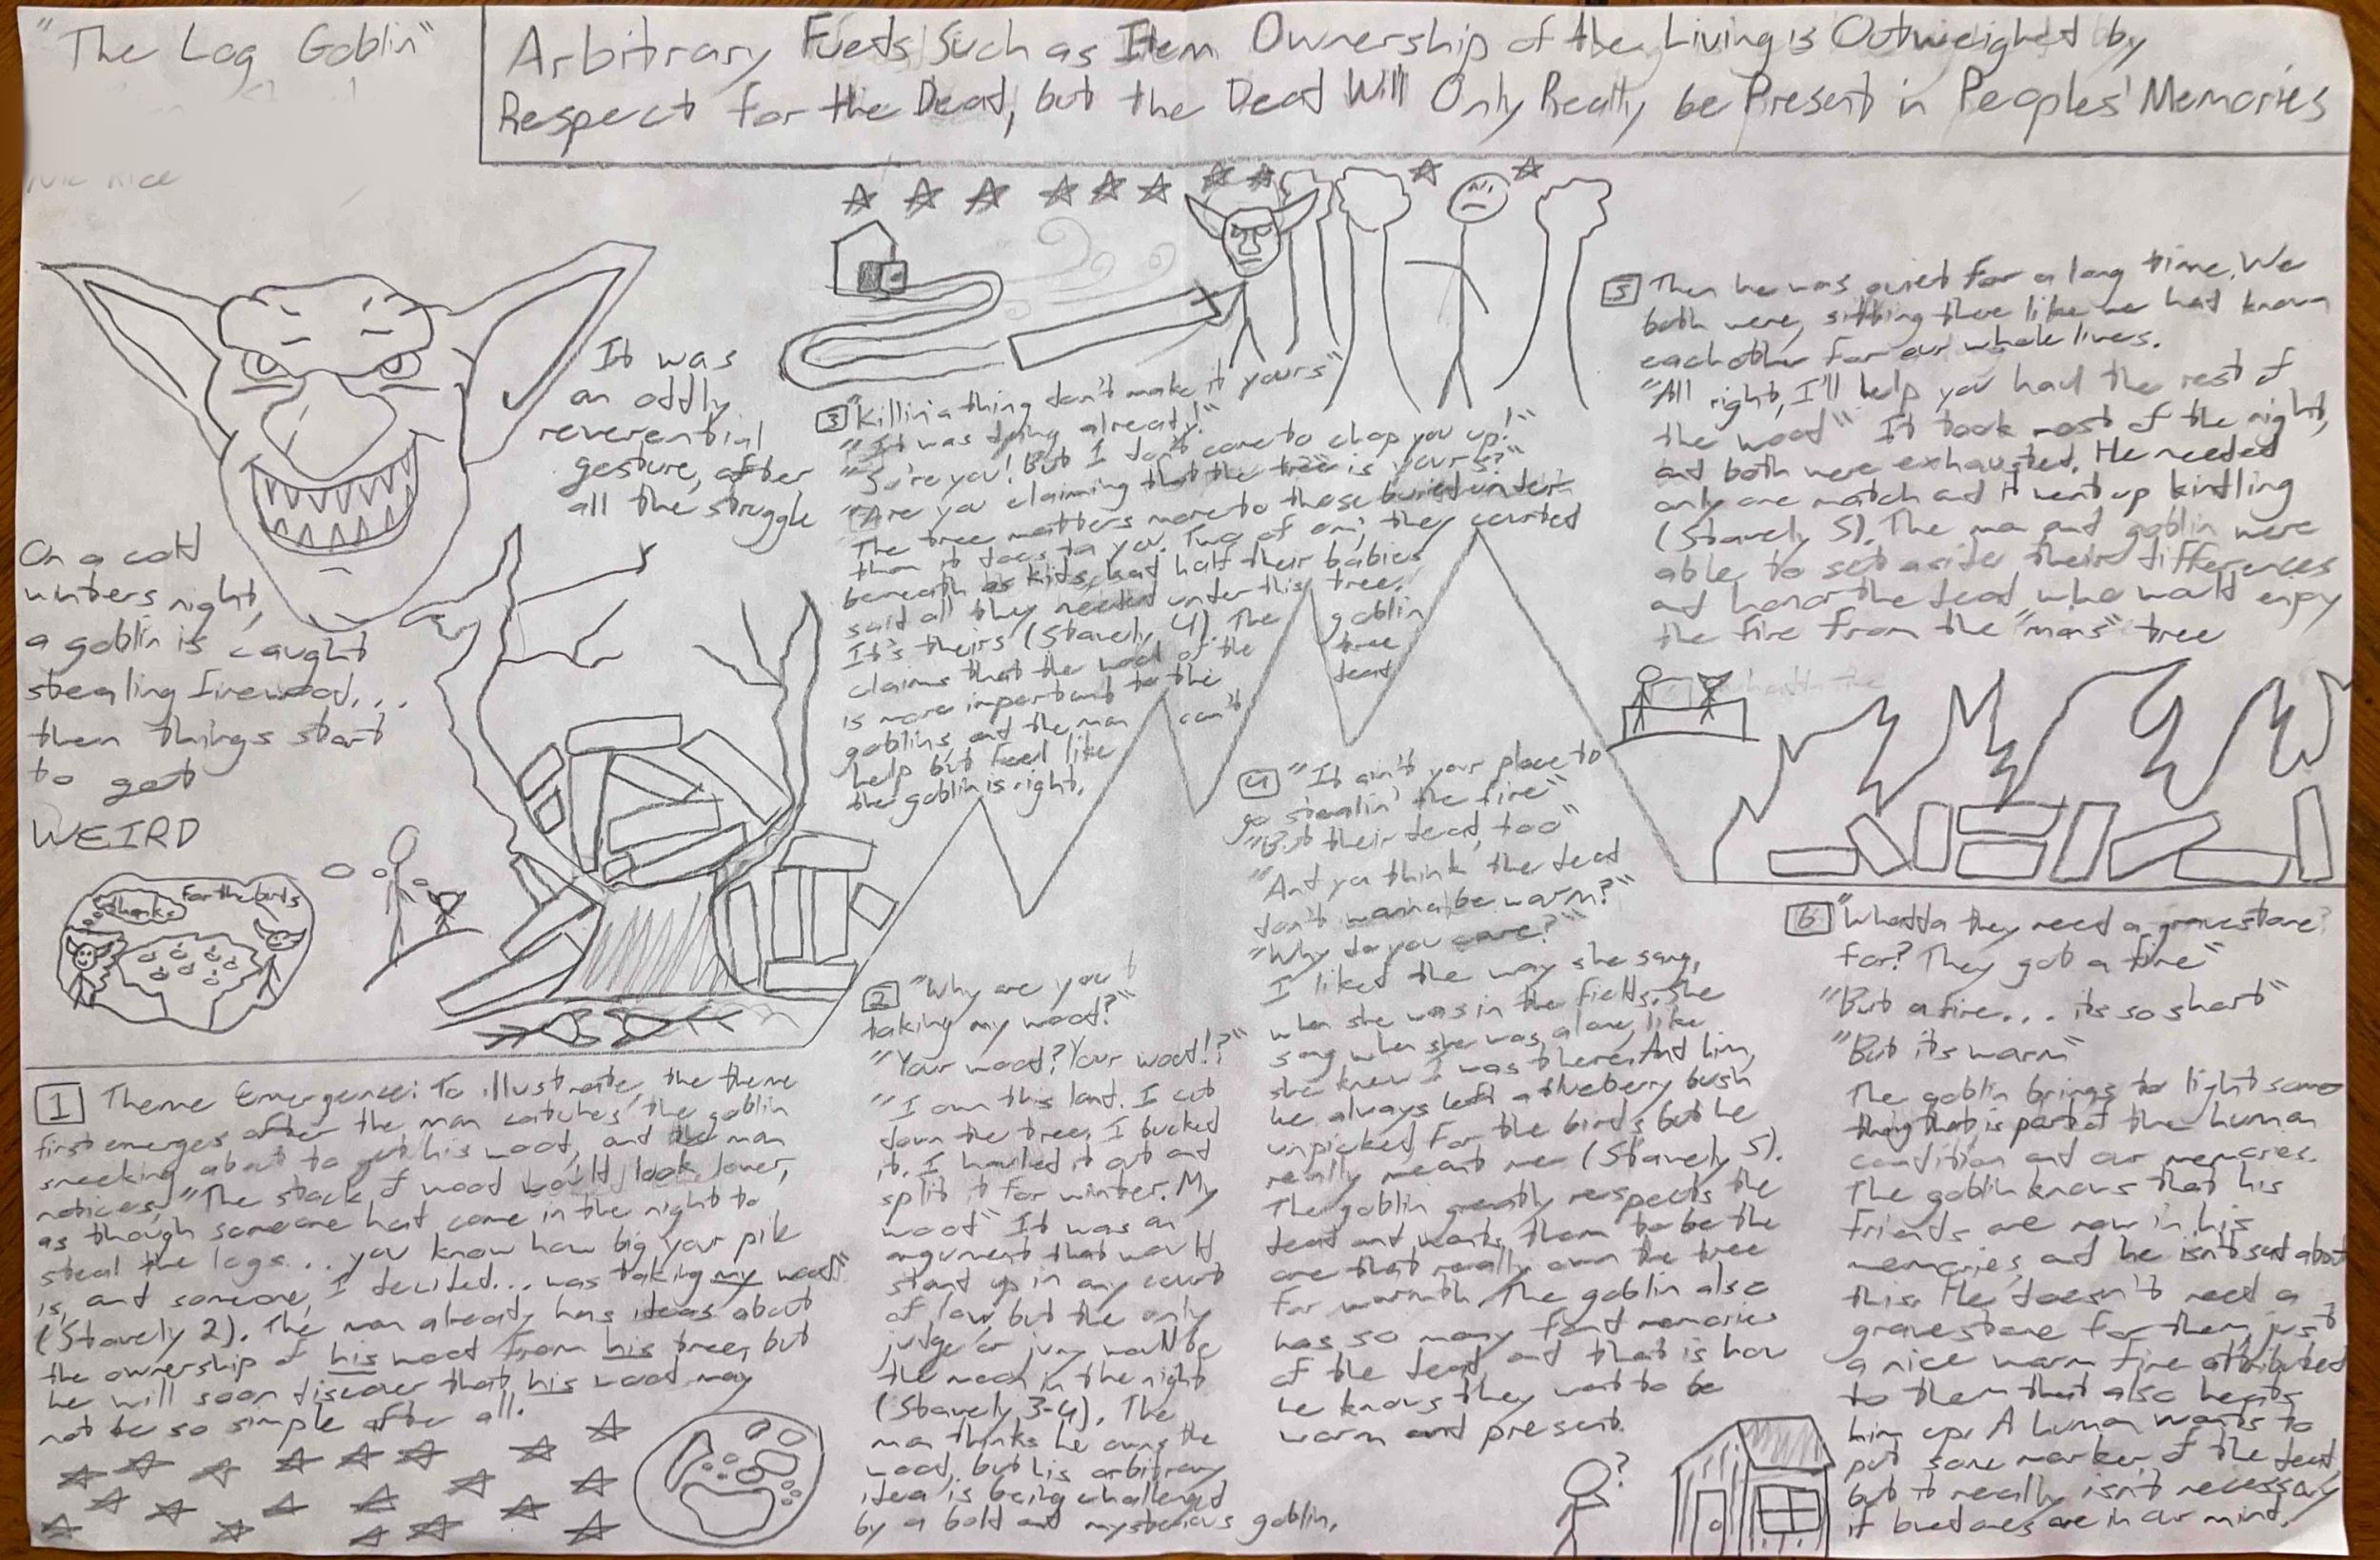 "The Log Goblin"
Arbitrary Fueds Such as Item Ownership of the Living is Outweighed by
Respect for the Dead, but the Dead Will Only Really be Present in Peoples' Memories
It was
an oddly
reverential
gesture, after
all the struggle
On a cold
winters night,
a goblin is caught
stealing firewood...
then things start
to get
WEIRD
Thanks
For the birds
1 Theme Emergence: To illustrate, the theme
first emerges after the man catches the goblin
sneeking about to get his wood, and the man
notices, "The stack of wood would look lower,
as though someone had come in the night to
steal the logs... you know how big your pile
is, and someone, I decided... was taking my wood"
(Stavely 2). The man already has ideas about
the ownership of his wood from his tree, but
he will soon discover that his wood may
not be so simple after all.
2 "Why are you
taking my wood?"
"Your wood? Your wood!?"
"I own this land. I cut
down the tree, I bucked
it. I hauled it out and
split it for winter. My
wood" It was an
argument that would
stand up in any court
of law, but the only
judge or jury would be
the moon in the night
(Stavely 3-4). The
man thinks he owns the
wood, but his arbitrary
idea is being challenged
by a bold and mysterious goblin.
3 "Killin' a thing don't make it yours"
"It was dying already!"
"So're you! But I don't come to chop you up!"
"Are you claiming that the tree is yours?"
The tree matters more to those buried under it
than it does to you. Two of em; they courted
beneath as kids, had half their babies
said all they needed under this tree.
It's theirs (Stavely 4). The goblin
claims that the wood of the tree
is more important to the dead
goblins, and the man can't
help but feel like
the goblin is right.
4 "It ain't your place to
go stealin' the fire"
"But their dead, too"
"And you think the dead
don't wanna be warm?"
"Why do you care?"
I liked the way she sang,
when she was in the fields. She
sang when she was alone, like
she knew I was there. And him,
he always left a blueberry bush
unpicked, For the birds but he
really meant me (Stavely 5).
The goblin greatly respects the
dead and wants them to be the
one that really own the tree
for warmth. The goblin also
has so many fond memories
of the dead and that is how
he knows they want to be
warm and present.
5 Then he was quiet for a long time. We
both were, sitting there like we had known
each other for our whole lives.
"All right, I'll help you haul the rest of
the wood" It took most of the night,
and both were exhausted. He needed
only one match and it went up kindling
(Stavely 5). The man and goblin were
able to set aside their differences
and honor the dead who would enjoy
the fire from the "mans" tree
6 "Whatta they need a gravestone
for? They got a fire"
"But a fire... its so short"
"But its warm"
The goblin brings to light some
thing that is part of the human
condition and our memories.
The goblin knows that his
friends are now in his
memories, and he isn't sad about
this. He doesn't need a
gravestone for them, just
a nice warm fire attributed
to them that also heats
him up. A human wants to
put some marker of the dead,
but it really isn't necessary
if loved ones are in our mind.
?